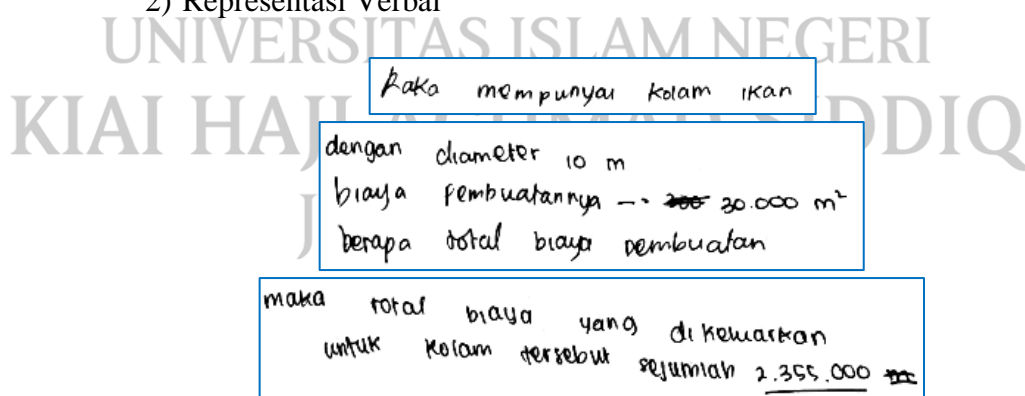 2) Representasi Verbal
UNIVERSITAS ISLAM NEGERI
KIAI HAJI ACHMAD SIDDIQ
Raka mempunyai kolam ikan
dengan diameter 10 m
biaya pembuatannya → 30.000 m²
berapa total biaya pembuatan
maka total biaya yang dikeluarkan
untuk kolam tersebut sejumlah 2.355.000